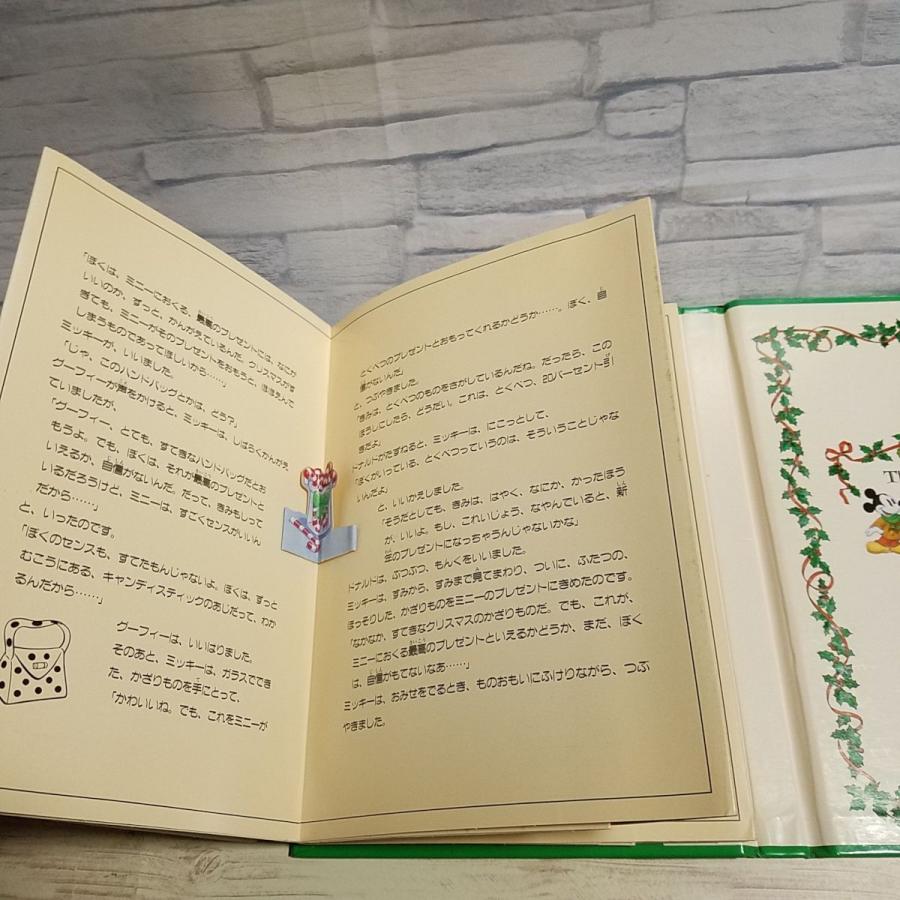 「ぼくは、ミニーにおくる、最高のプレゼントには、なにが
いいのか、ずっと、かんがえているんだ。クリスマスがす
ぎても、ミニーがそのプレゼントをおもうと、ほほえんで
しまうものであってほしいから……」
ミッキーが、いいました。
「じゃ、このハンドバッグとかは、どう?」
グーフィーが声をかけると、ミッキーは、しばらくかんがえ
ていましたが、
「グーフィー、とても、すてきなハンドバッグだとお
もうよ。でも、ぼくは、それが最高のプレゼントと
いえるか、自信がないんだ。だって、きみもしって
いるだろうけど、ミニーは、すごくセンスがいいん
だから……」
と、いったのです。
「ぼくのセンスも、すてたもんじゃないよ。ぼくは、ずっと
むこうにある、キャンディスティックのあじだって、わか
るんだから……」
グーフィーは、いいはりました。
そのあと、ミッキーは、ガラスででき
た、かざりものを手にとって、
「かわいいね。でも、これをミニーが
とくべつのプレゼントとおもってくれるかどうか……。ぼく、自
信がないんだ」
と、つぶやきました。
「きみは、とくべつのものをさがしているんだね。だったら、この
ほうしにしたら、どうだい。これは、とくべつ、20パーセント引
きだよ」
ドナルドがたずねると、ミッキーは、にこっとして、
「ぼくがいっている、とくべつっていうのは、そういうことじゃな
いんだよ」
と、いいかえしました。
「そうだとしても、きみは、はやく、なにか、かったほう
が、いいよ。もし、これいじょう、なやんでいると、新
年のプレゼントになっちゃうんじゃないかな」
ドナルドは、ぶつぶつ、もんくをいいました。
ミッキーは、すみから、すみまで見てまわり、ついに、ふたつの、
ほっそりした、かざりものをミニーのプレゼントにきめたのです。
「なかなか、すてきなクリスマスのかざりものだ。でも、これが、
ミニーにおくる最高のプレゼントといえるかどうか、まだ、ぼく
は、自信がもてないなあ……」
ミッキーは、おみせをでるとき、ものおもいにふけりながら、つぶ
やきました。